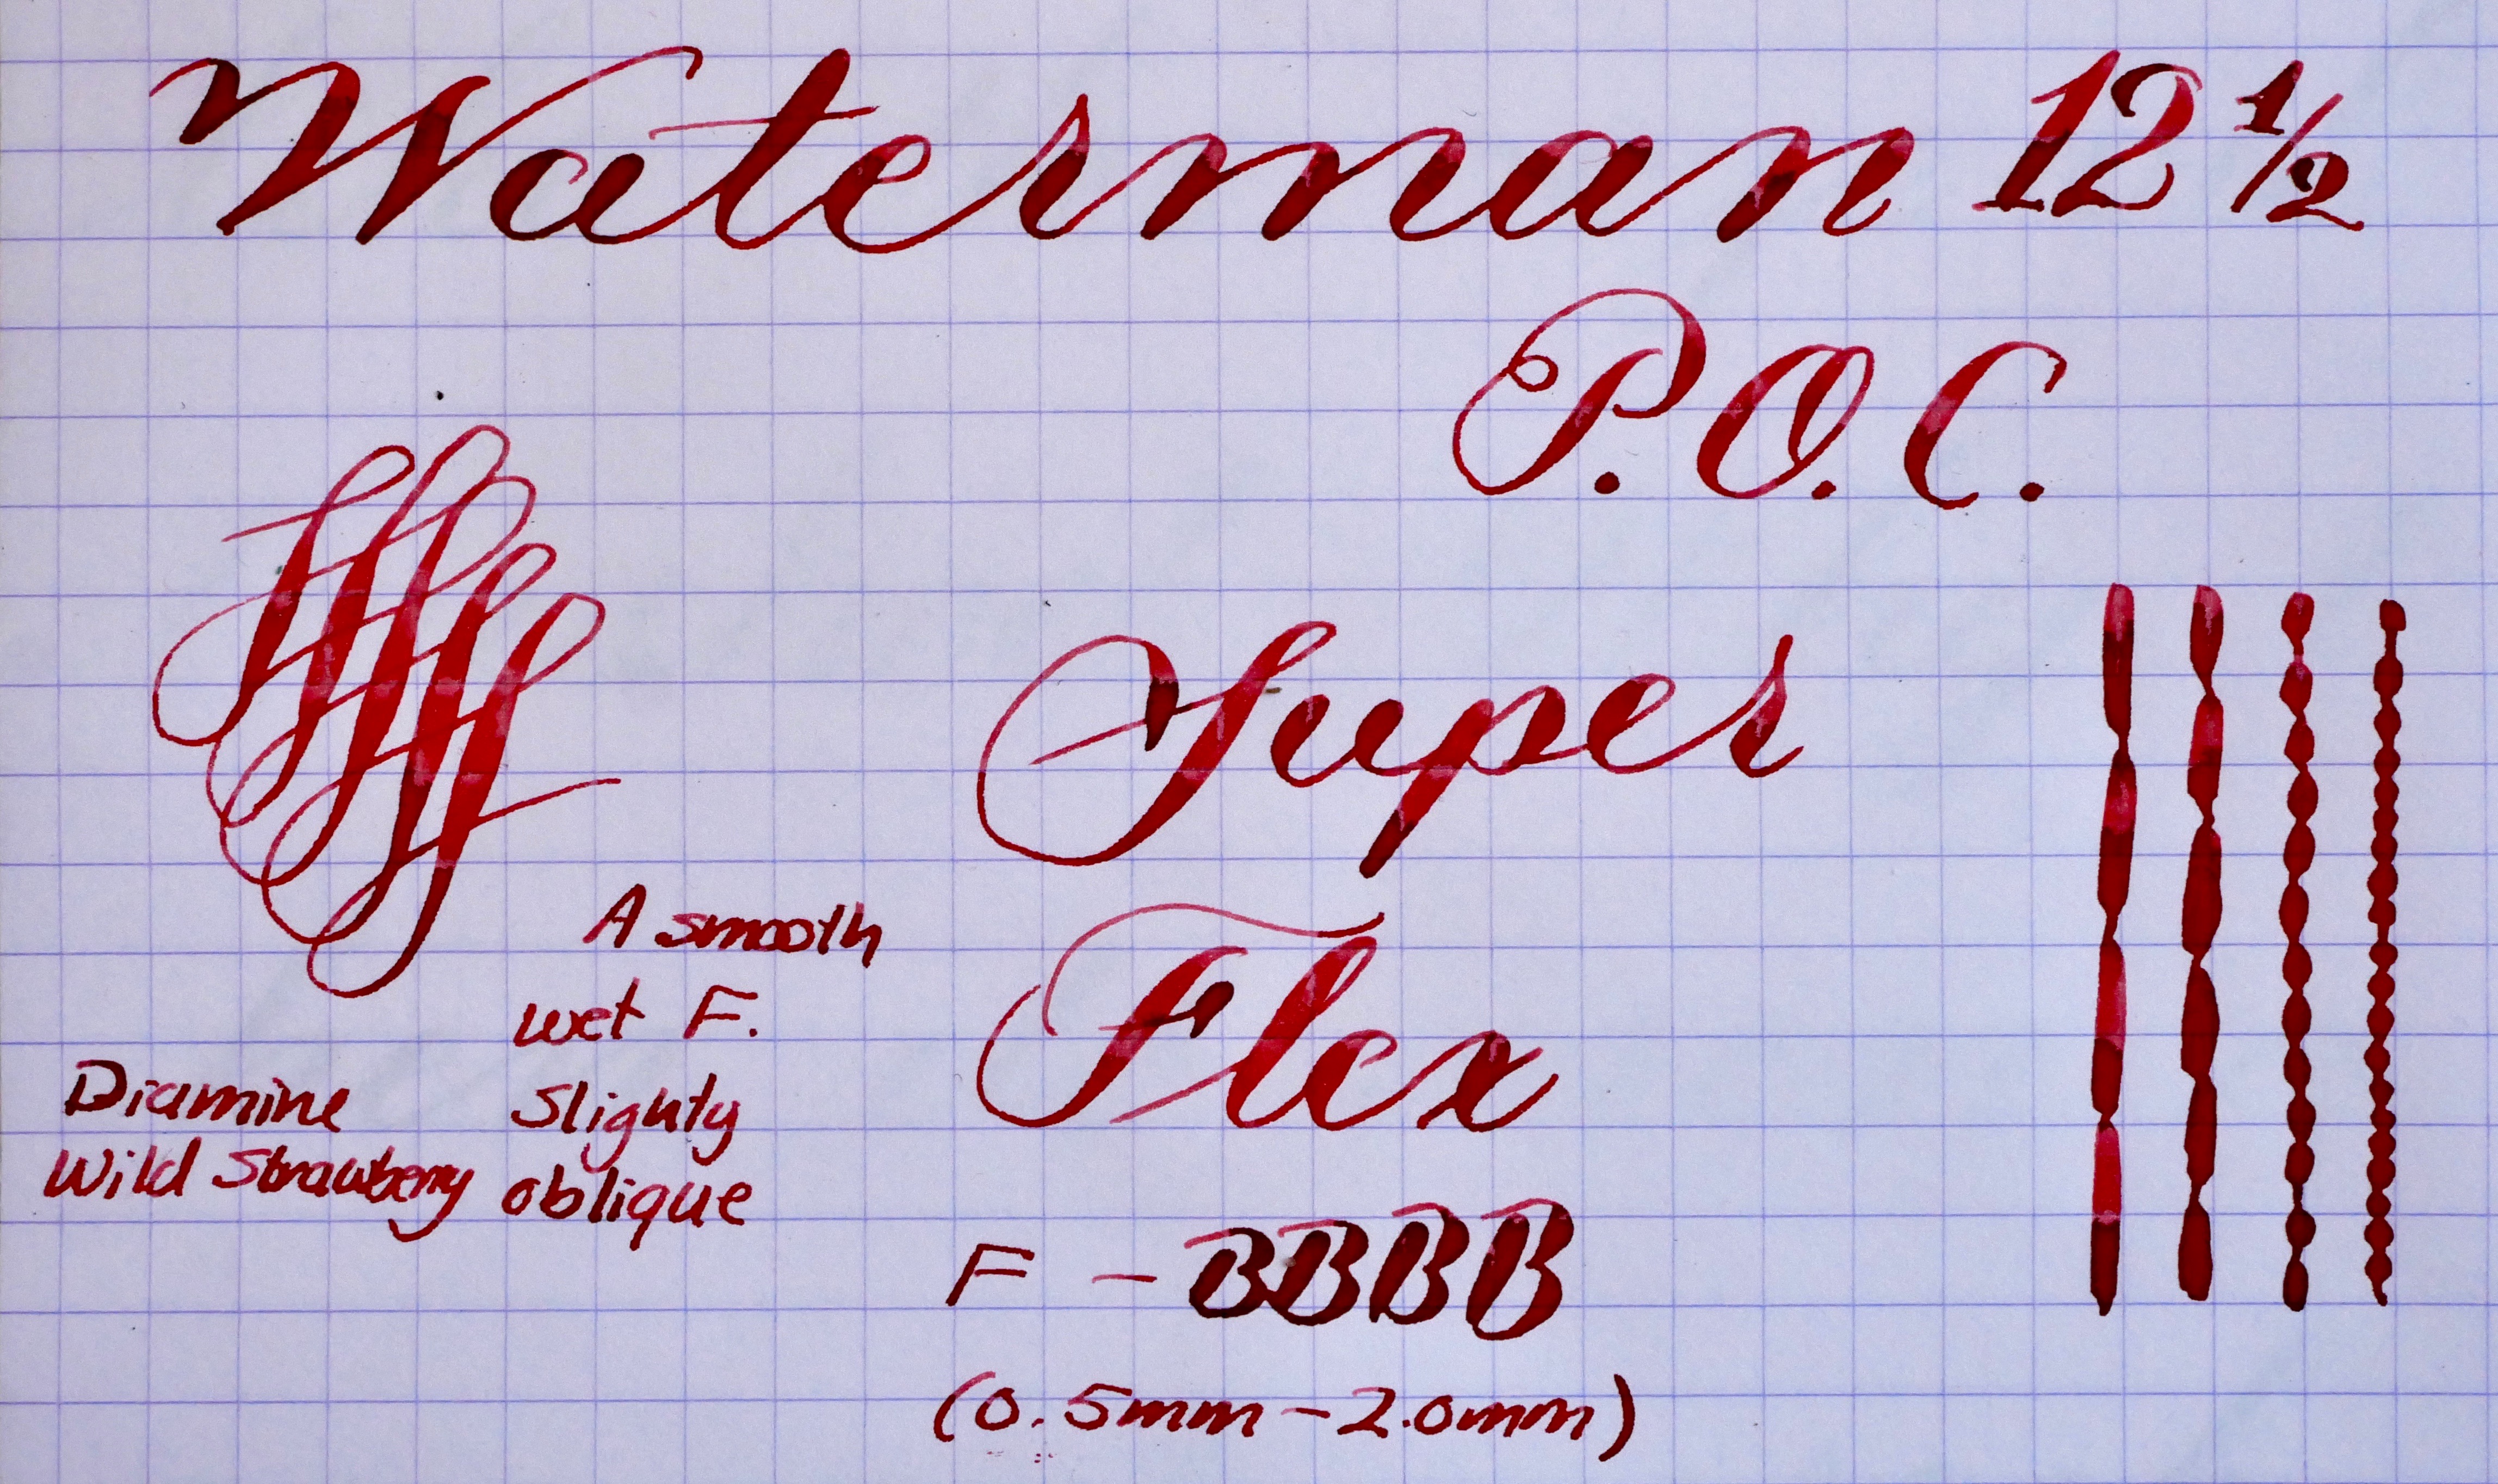 Waterman 12 1/2
P.O.C.
Super
Flex
A smooth
wet F.
Slighty
oblique
Diamine
Wild Strawberry
F - BBBB
(0.5mm - 2.0mm)